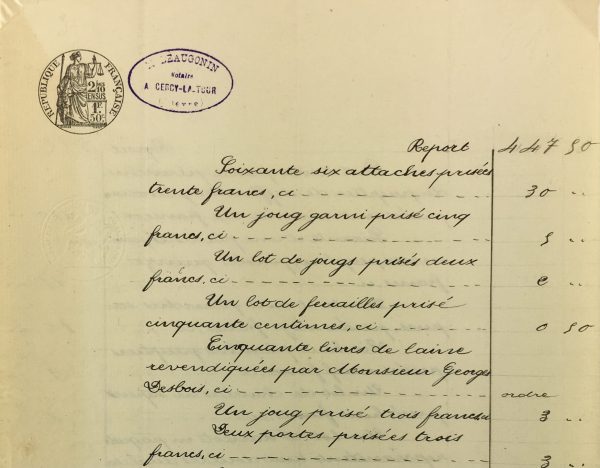 RÉPUBLIQUE FRANÇAISE
2/10
EN SUS
1F
50c
BÉAUGONIN
Notaire
A CERCY-LA-TOUR
(NIÈVRE)
Report 447 50
Soixante six attaches prisées
trente francs, ci 30 "
Un joug garni prisé cinq
francs, ci 5 "
Un lot de jougs prisés deux
francs, ci 2 "
Un lot de feuailles prisé
cinquante centimes, ci 0 50
Cinquante livres de laine
revendiquées par Monsieur Georges
Desbois, ci ordre
Un joug prisé trois francs ci 3 "
Deux portes prisées trois
francs, ci 3 "